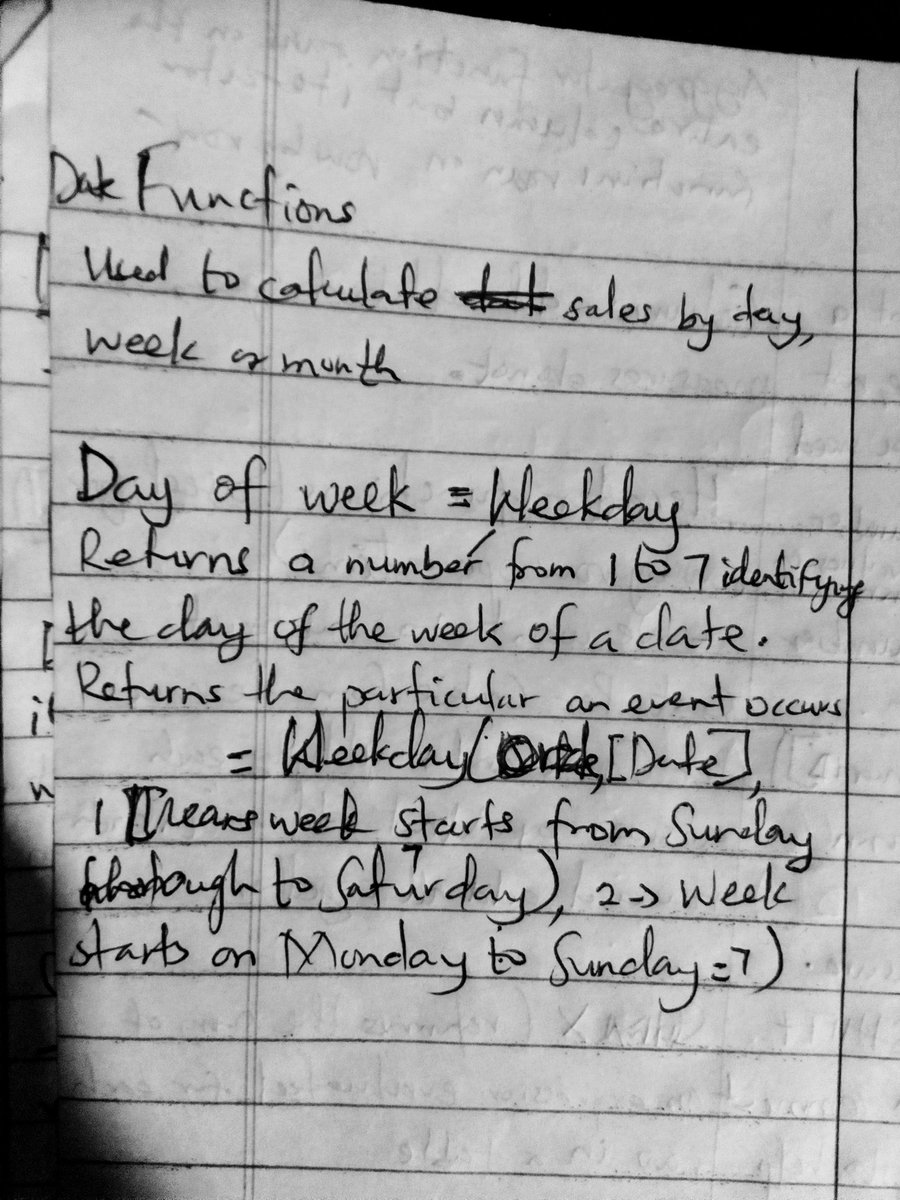 Date Functions
Used to calculate sales by day,
week or month
Day of week = Weekday
Returns a number from 1 to 7 identifying
the day of the week of a date.
Returns the particular an event occurs
= Weekday( [Date],
1 [Means week starts from Sunday
through to Saturday), 2 -> Week
7
starts on Monday to Sunday=7)